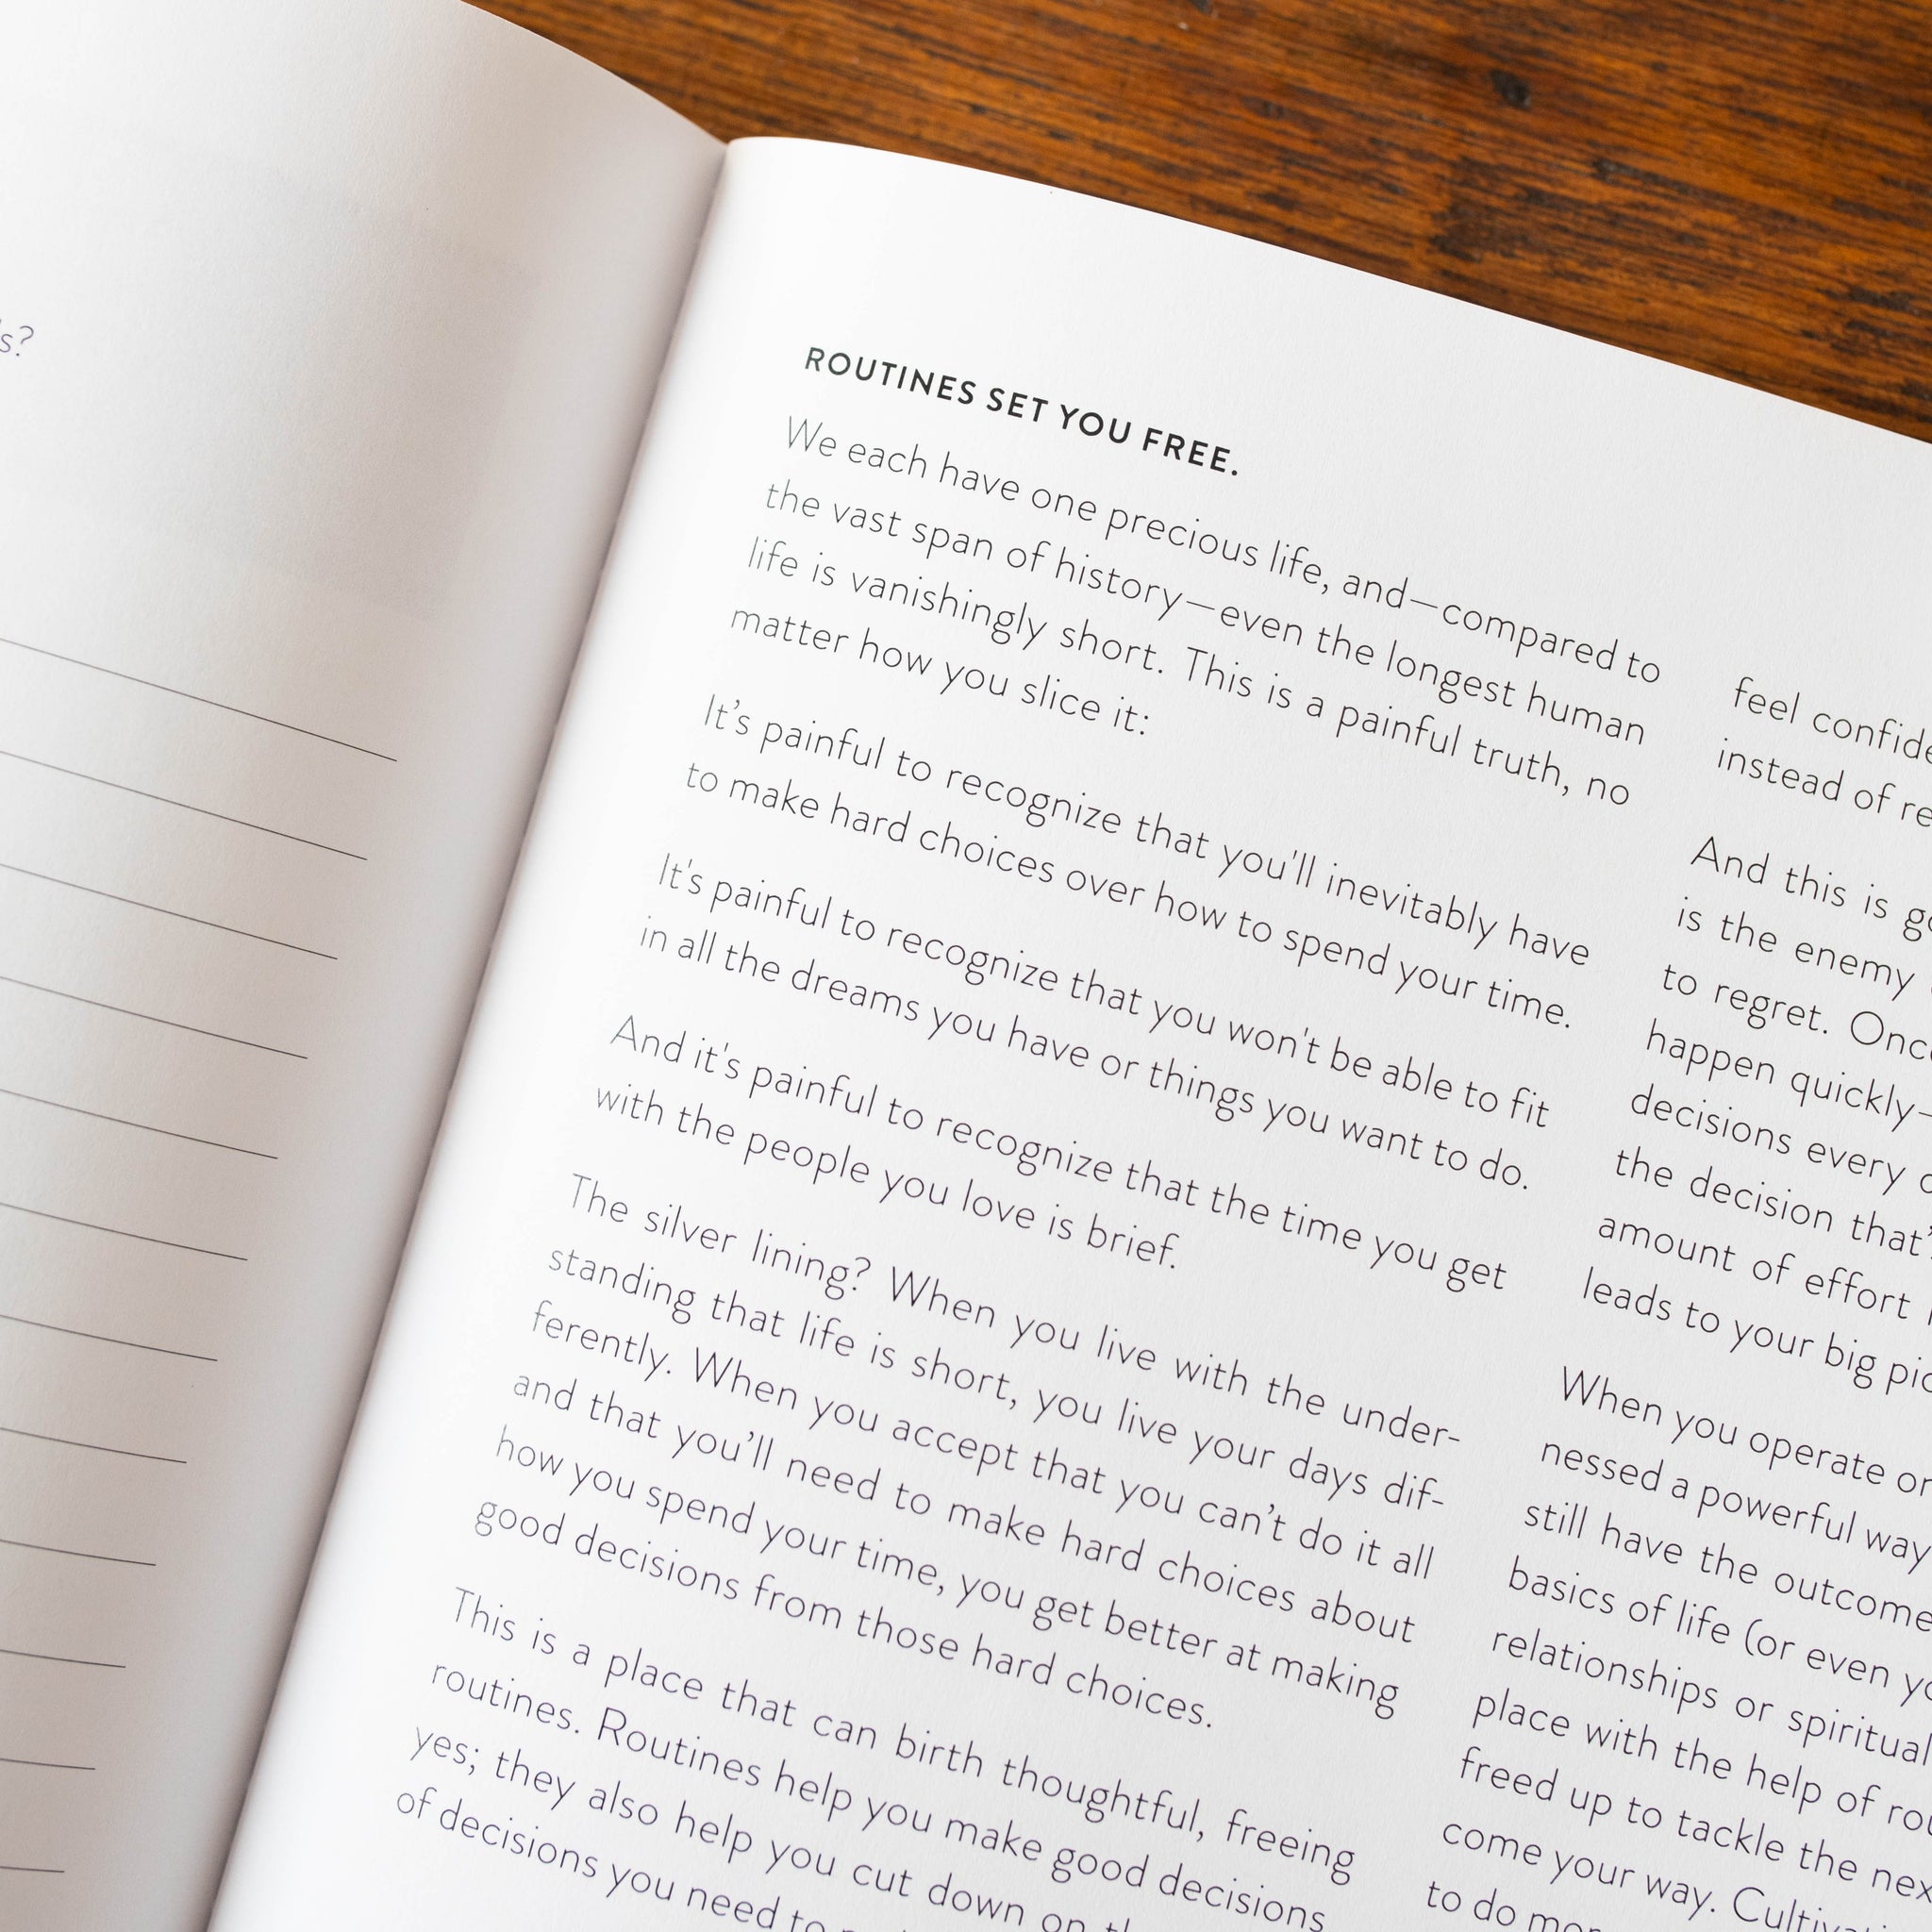 s?
ROUTINES SET YOU FREE.
We each have one precious life, and—compared to
the vast span of history—even the longest human
life is vanishingly short. This is a painful truth, no
matter how you slice it:
It’s painful to recognize that you'll inevitably have
to make hard choices over how to spend your time.
It's painful to recognize that you won't be able to fit
in all the dreams you have or things you want to do.
And it's painful to recognize that the time you get
with the people you love is brief.
The silver lining? When you live with the under-
standing that life is short, you live your days dif-
ferently. When you accept that you can’t do it all
and that you’ll need to make hard choices about
how you spend your time, you get better at making
good decisions from those hard choices.
This is a place that can birth thoughtful, freeing
routines. Routines help you make good decisions
yes; they also help you cut down on
of decisions you need to
feel
instead of
And this is
is the enemy
to regret.
happen quickly—
decisions every
the decision
amount of effort
leads to your big
When you operate
nessed a powerful way
still have the outcome
basics of life (or even
relationships or spiritual
place with the help of
freed up to tackle the
come your way.
to do